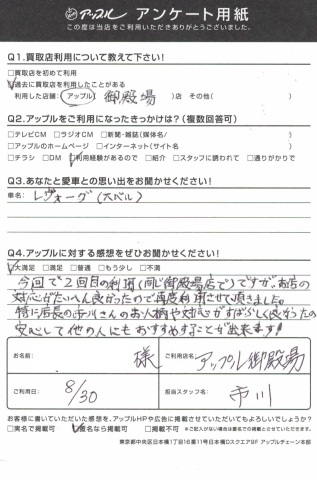 アップル アンケート用紙
この度は当店をご利用いただきありがとうございました。
Q1.買取店利用について教えて下さい!
□買取店を初めて利用
☑過去に買取店を利用したことがある
利用した店舗:(アップル) 御殿場)店 その他( )
Q2.アップルをご利用になったきっかけは?(複数回答可)
□テレビCM □ラジオCM □新聞・雑誌(媒体名/ )
□アップルのホームページ □インターネット(サイト名 )
□チラシ □DM ☑利用経験があるので □紹介 □スタッフに誘われて □通りがかりで
Q3.あなたと愛車との思い出をお聞かせください!
車名: レヴォーグ(スバル)
Q4.アップルに対する感想をぜひお聞かせください!
☑大満足 □満足 □普通 □もう少し □不満
今回で2回目の利用(同じ御殿場店で)ですが、お店の
対応がたいへん良かったので再度利用させて頂きました。
特に店長の市川さんのお人柄や対応がすばらしく良かったの
安心して他の人にもおすすめすることが出来ます!
お名前: 様
ご利用店名: アップル御殿場
ご利用日: 8/30
担当スタッフ名: 市川
お客様に書いていただいた感想を、アップルHPや広告に掲載させていただいてもよろしいでしょうか?
□実名で掲載可 ☑匿名なら掲載可 □掲載不可 ※ご記入がない場合は匿名での掲載とさせていただきます。
東京都中央区日本橋1丁目16番11号日本橋Dスクエア9F アップルチェーン本部